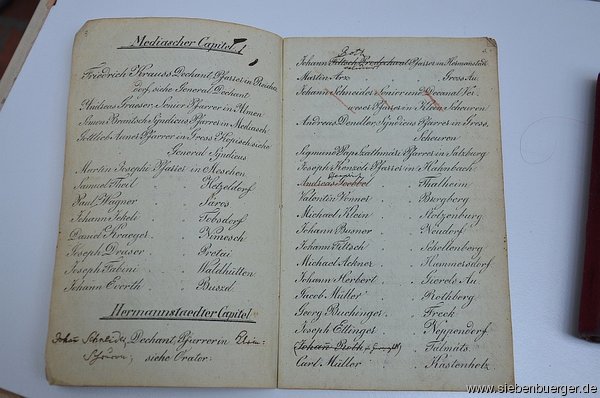 Mediascher Capitel.
Friedrich Krauss Dechant Pfarrer in Reiche
dorf, siehe General Dechant
Andreas Graeser Senior Pfarrer in Almen
Simon Brantsch Syndicus Pfarrer in Mediasch
Gottlieb Auner Pfarrer in Gross Kopisch siehe
General Syndicus
Martin Josephi Pfarrer in Meschen
Samuel Theil Hetzeldorf
Paul Wagner Sáros
Johann Jekeli Tobsdorf
Daniel Kraeger Nimesch
Joseph Drauser Pretai
Joseph Fabini Waldhütten
Johann Coorth Buszd
Hermannstaedter Capitel
Schneider, Dechant, Pfarrer in Klein-
Scheuren siehe Orator:
Johann Roth Pfarrer in Hermannstadt
Martin Arz Gross Au
Johann Schneider Senior und Decanal Vi-
Pfarrer in Klein Scheuren
Andreas Dendler, Syndicus Pfarrer in Gross
Scheuren
Sigmund Pfarrer in Salzburg
Joseph Pfarrer in Hahnbach
Andreas Thalheim
Valentin Vonner Burgberg
Michael Klein Stolzenburg
Johann Busner Neudorf
Johann Filtsch Schellenberg
Michael Ackner Hammersdorf
Johann Herbert Gierels Au
Jacob Müller Rothberg
Georg Buchinger Freck
Joseph Ettinger Neppendorf
Johann Roth Talmáts
Carl Müller Kastenholz
www.siebenbuerger.de